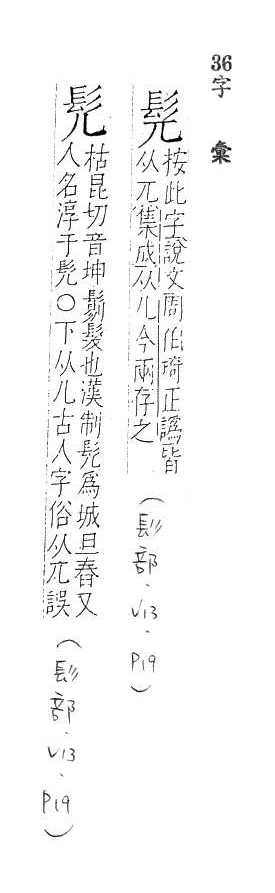 36 字彙
髡 按此字說文周伯琦正譌皆
从兀集成从儿今兩存之
(髟部.V13.P19)
髠 枯昆切音坤鬀髮也漢制髠爲城旦舂又
人名淳于髠〇下从儿古人字俗从兀誤
(髟部.V13.P19)